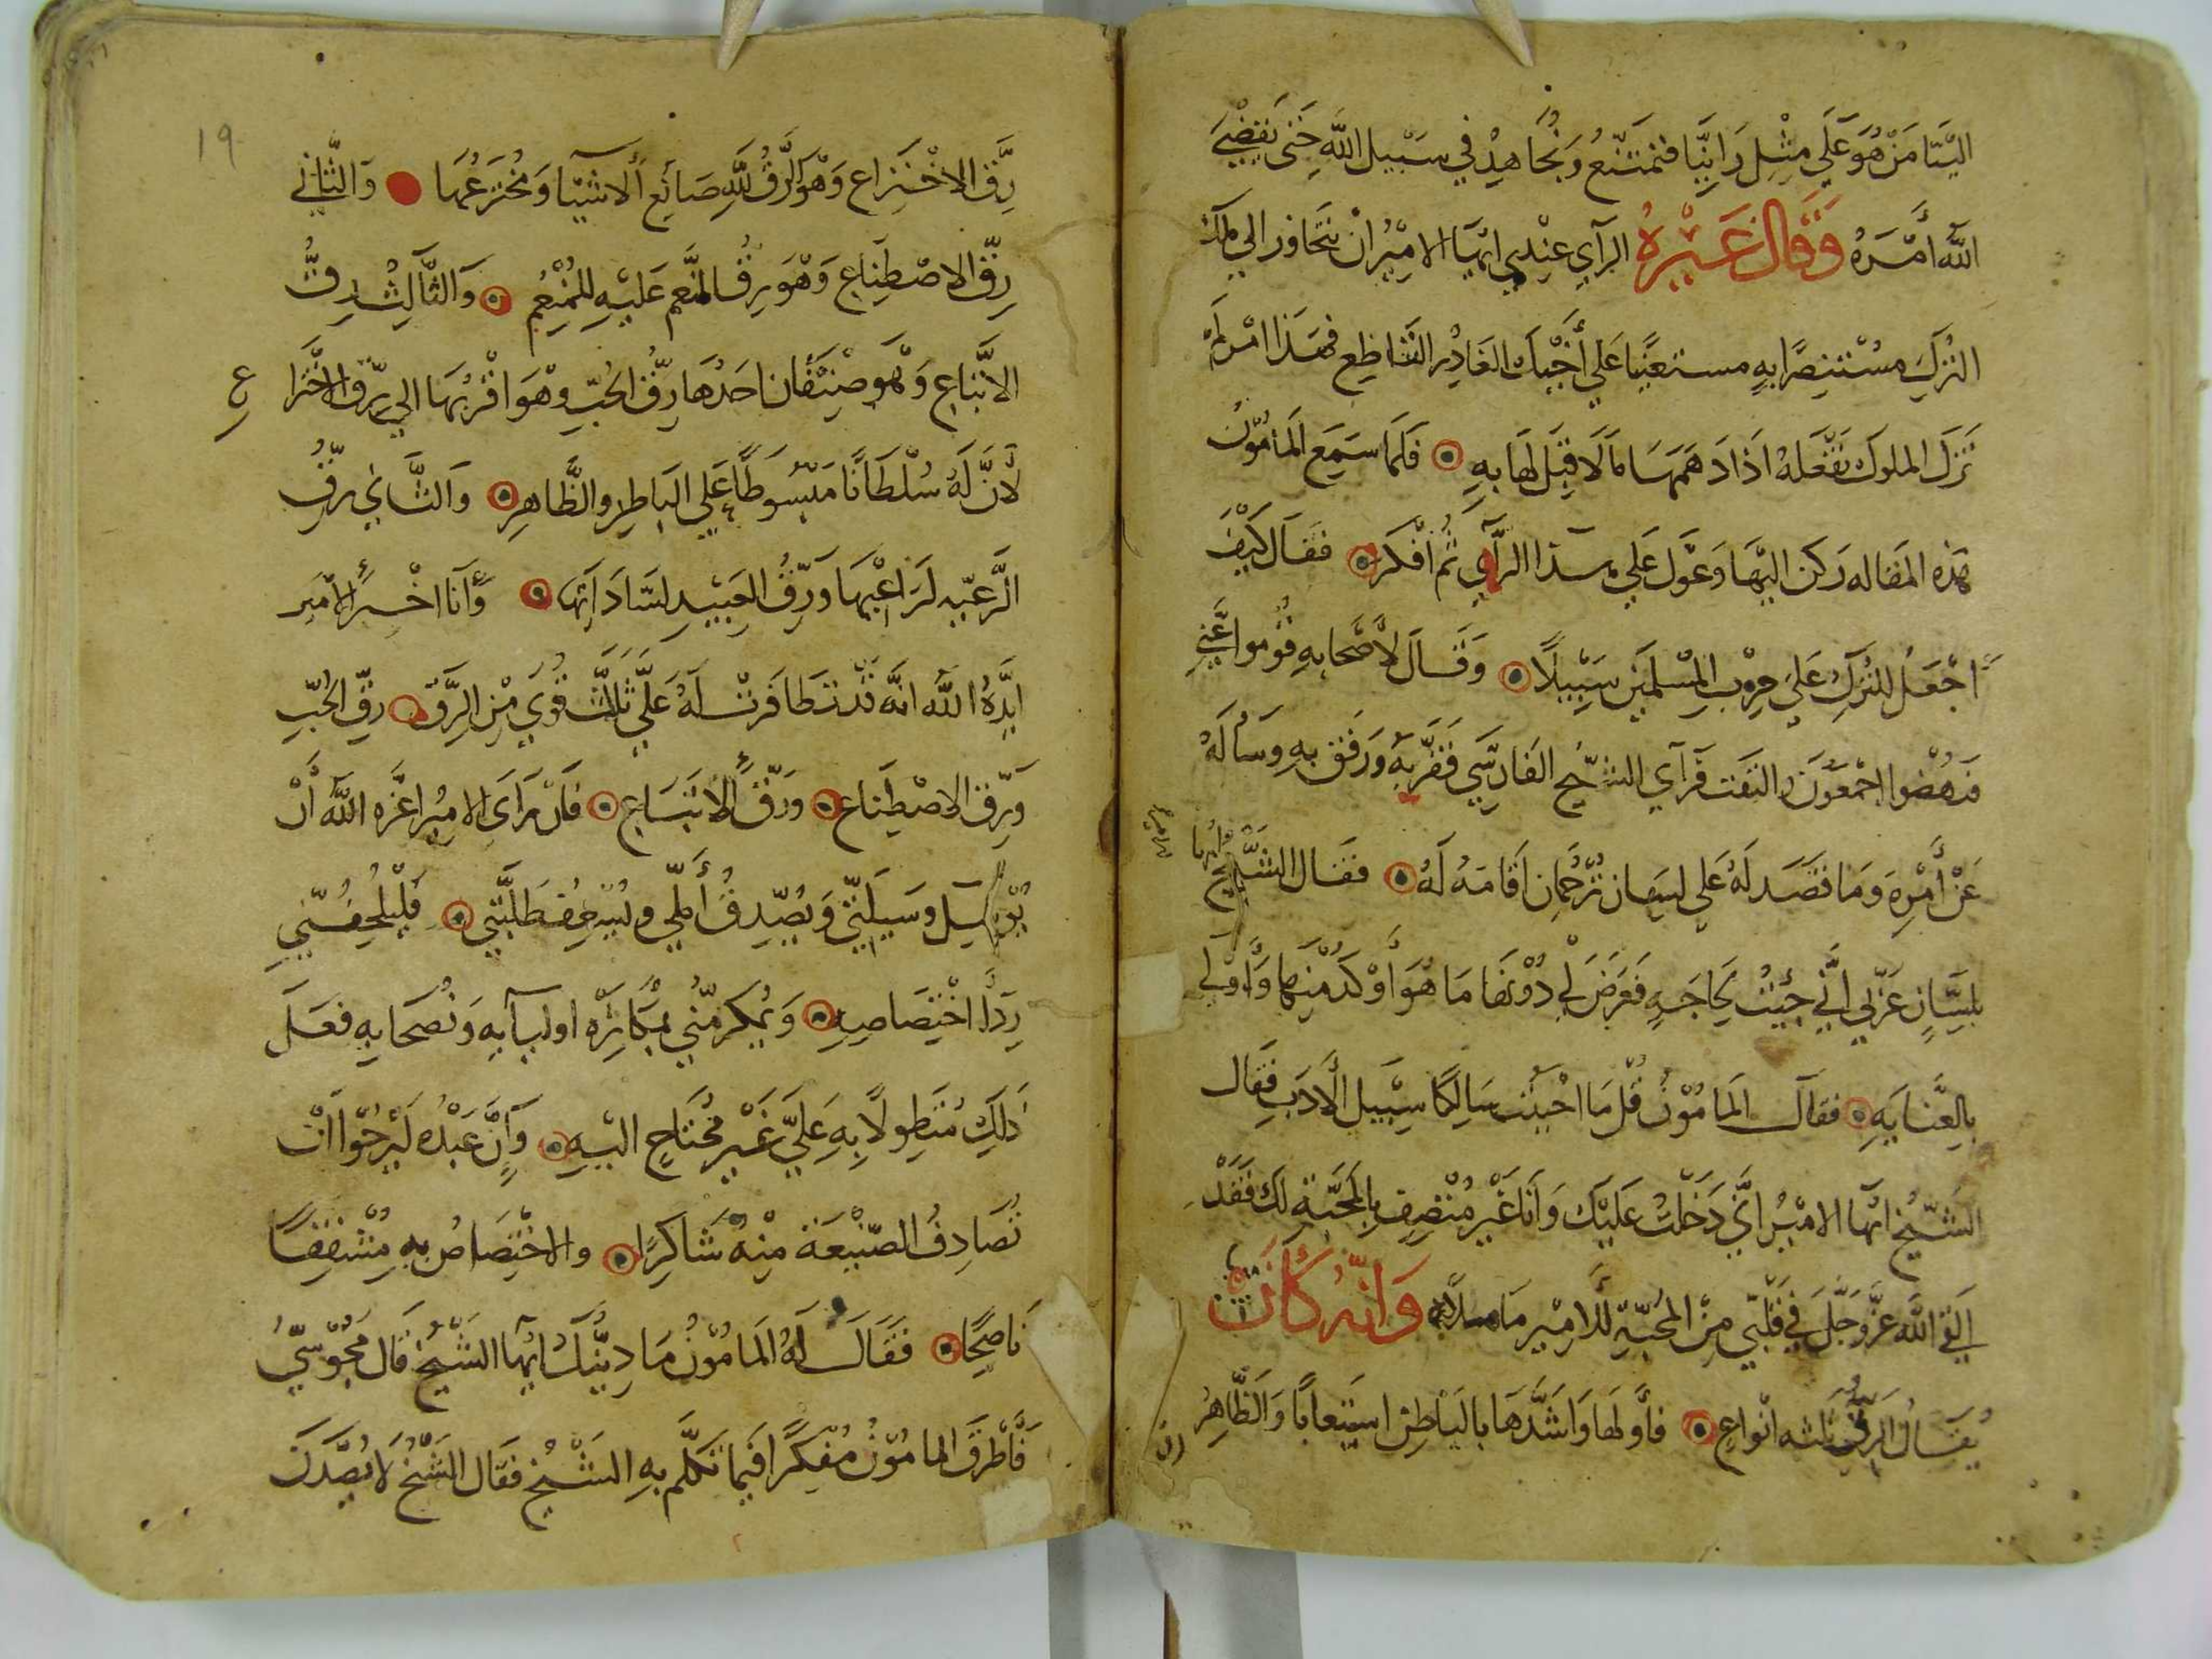 الينا من هو على مثل راينا فنمتنع ونجاهد في سبيل الله حتى يقضي
الله أمره وقال غيره الرآي عندي ايها الامير ان تتحاوز الي ملك
الترك مستنصرا به مستعينا علي أخيك الغادر القاطع فهذا امر لم
تزل الملوك تفعله اذا دهمها ما لا قبل لها به فلما سمع المأمون
هذه المقاله ركن اليها وعول علي هذا الرآي ثم افكر فقال كيف
اجعل للترك علي حرب المسلمين سبيلا وقال لأصحابه قوموا عني
فنهضوا اجمعون والتفت فرآي الشيخ الفارسي فقربه ورفق به وسأله
عن أمره وما قصد له علي لسان ترجمان اقامه له فقال الشيخ
بلسان عربي اني جيت لحاجه فعرض لي دونها ما هو أوكد منها وأولي
بالعنايه فقال المامون قل ما احببت سالكا سبيل الأدب فقال
الشيخ ايها الامير اني دخلت عليك وانا غير متصف بالمحبة لك فقد
القي الله عز وجل في قلبي من المحبة للامير ما ملاه وانه كان
يقال الرق ثلثه انواع فأولها واشدها بالباطن استيعابا والظاهر
١٩
رق الاختراع وهو الرق لله صانع الاشيا ومخترعها والثاني
رق الاصطناع وهو رق المنعم عليه للمنعم والثالث رق
الاتباع وهو صنفان احدها رق الحب وهو اقربها الي رق الاخترا
ع
لأن له سلطانا مبسوطا علي الباطن والظاهر والثاني رق
الرعيه لراعيها ورق العبيد لساداتها وأنا اخبر الامير
ايده الله انه قد تظافرت له علي ثلث قوي من الرق رق الحب
ورق الاصطناع ورق الاتباع فان راى الامير اعزه الله أن
يوسل وسيلتي ويصدق أملي ويسعف طلبتي فليلحفني
ردا اختصاصه ويكرمني بمكاثره اوليآيه ونصحايه فعل
ذلك متطولا به علي غير محتاج اليه وان عبده ليرجوا ان
تصادف الصنيعة منه شاكرا والاختصاص به مشفقا
ناصحا فقال له المامون ما دينك ايها الشيخ قال مجوسي
فأطرق المامون مفكرا فيما تكلم به الشيخ فقال الشيخ لا يصدنك